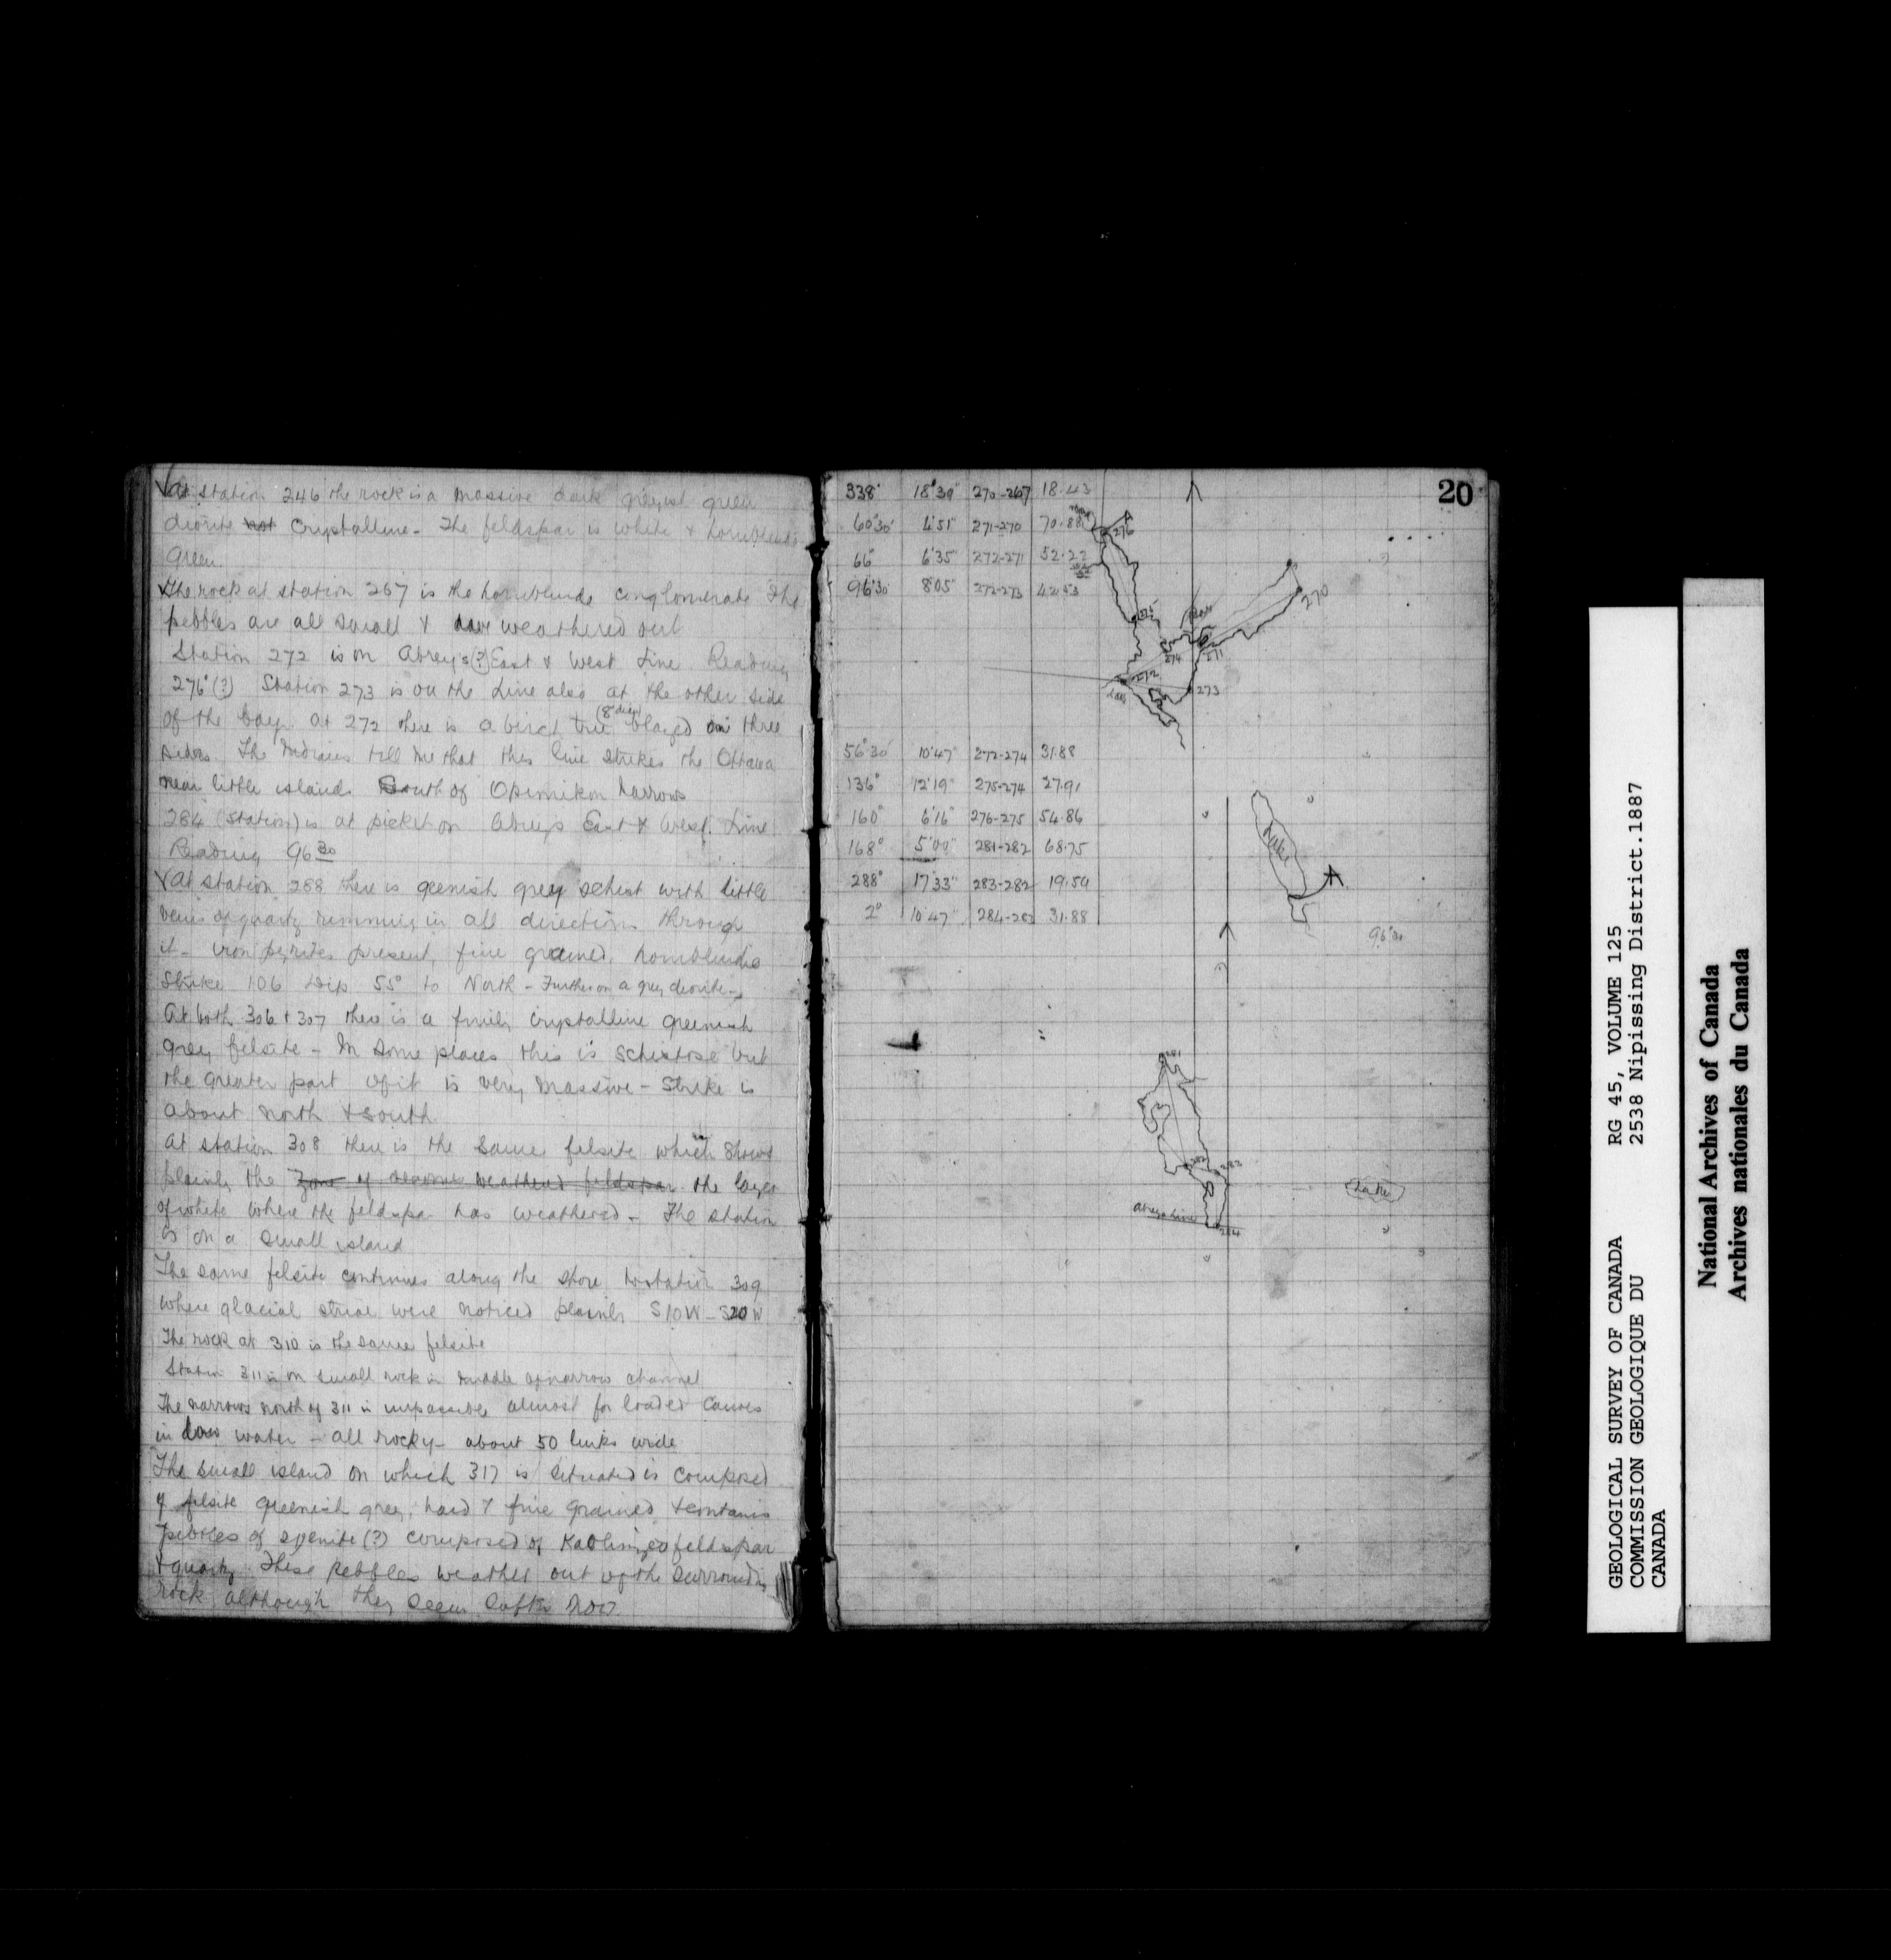 At station 246 the rock is a massive dark greyish green
diorite not crystalline - The feldspar is white & hornblende
green.
The rock at station 267 is the hornblende conglomerate The
pebbles are all small & have weathered out
Station 272 is on Abrey's (?) East & West Line. Reading
276° (?) Station 273 is on the Line also at the other side
of the bay. At 272 there is a birch tree (8" diam) blazed on three
sides. The Indians tell me that this line strikes the Ottawa
near little islands South of Opimikon Narrows
284 (station) is at picket on Abreys East & West. Line
Reading 96 30
At station 288 there is greenish grey schist with little
veins of quartz running in all direction through
it - iron pyrites present, fine grained, hornblendic
Strike 106 Dip 55° to North - Further on a grey diorite -
At both 306 & 307 there is a finely crystalline greenish
grey felsite - In some places this is schistose but
the greater part of it is very massive - Strike is
about north & south
At station 308 there is the same felsite which shows
plainly the Zone of weathered feldspar the layer
of white where the feldspar has weathered - The station
is on a small island
The same felsite continues along the shore to station 309
where glacial striae were noticed plainly S10W - S20W
The rock at 310 is the same felsite
Station 311 is on small rock in middle of narrow channel
The narrows north of 311 is impassible almost for loaded canoes
in low water - all rocky - about 50 links wide
The small island on which 317 is situated is composed
of felsite greenish grey, hard & fine grained & contains
pebbles of syenite (?) composed of Kaolinized feldspar
& quartz. These pebbles weather out of the surrounding
rock although they seem
20
338° 18'39" 270-267 18.43
60°30' 4'51" 271-270 70.88
66° 6'35" 272-271 52.22
96°30' 8'05" 272-273 42.53
56°30' 10'47" 272-274 31.88
136° 12'19" 275-274 27.91
160° 6'16" 276-275 54.86
168° 5'00" 281-282 68.75
288° 17'33" 283-282 19.54
2° 10'47" 284-283 31.88
276
270
275
274
271
272
273
Lake
96°30
281
282
283
Abreys Line
284
Lake
GEOLOGICAL SURVEY OF CANADA RG 45, VOLUME 125
COMMISSION GEOLOGIQUE DU 2538 Nipissing District.1887
CANADA
National Archives of Canada
Archives nationales du Canada